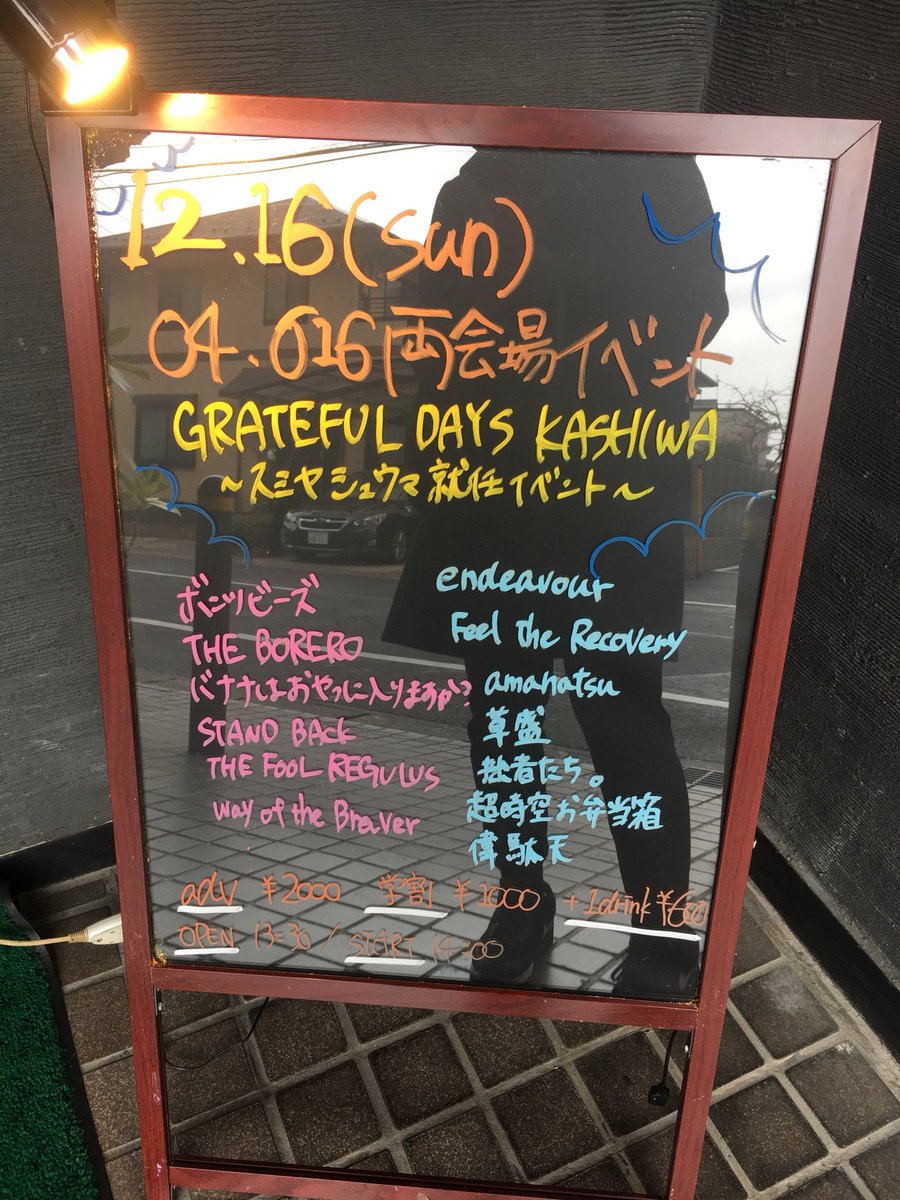 12.16(sun)
04.016両会場イベント
GRATEFUL DAYS KASHIWA
～スミヤシュウマ就任イベント～
ボニツビーズ
THE BORERO
バナナはおやつに入りますか?
STAND BACK
THE FOOL REGULUS
way of the Braver
endeavour
Feel the Recovery
amanatsu
草盛
拙者たち。
超時空お弁当箱
偉駄天
adv ¥2000 学割 ¥1000 +1drink ¥600
OPEN 13:30 / START 14:00